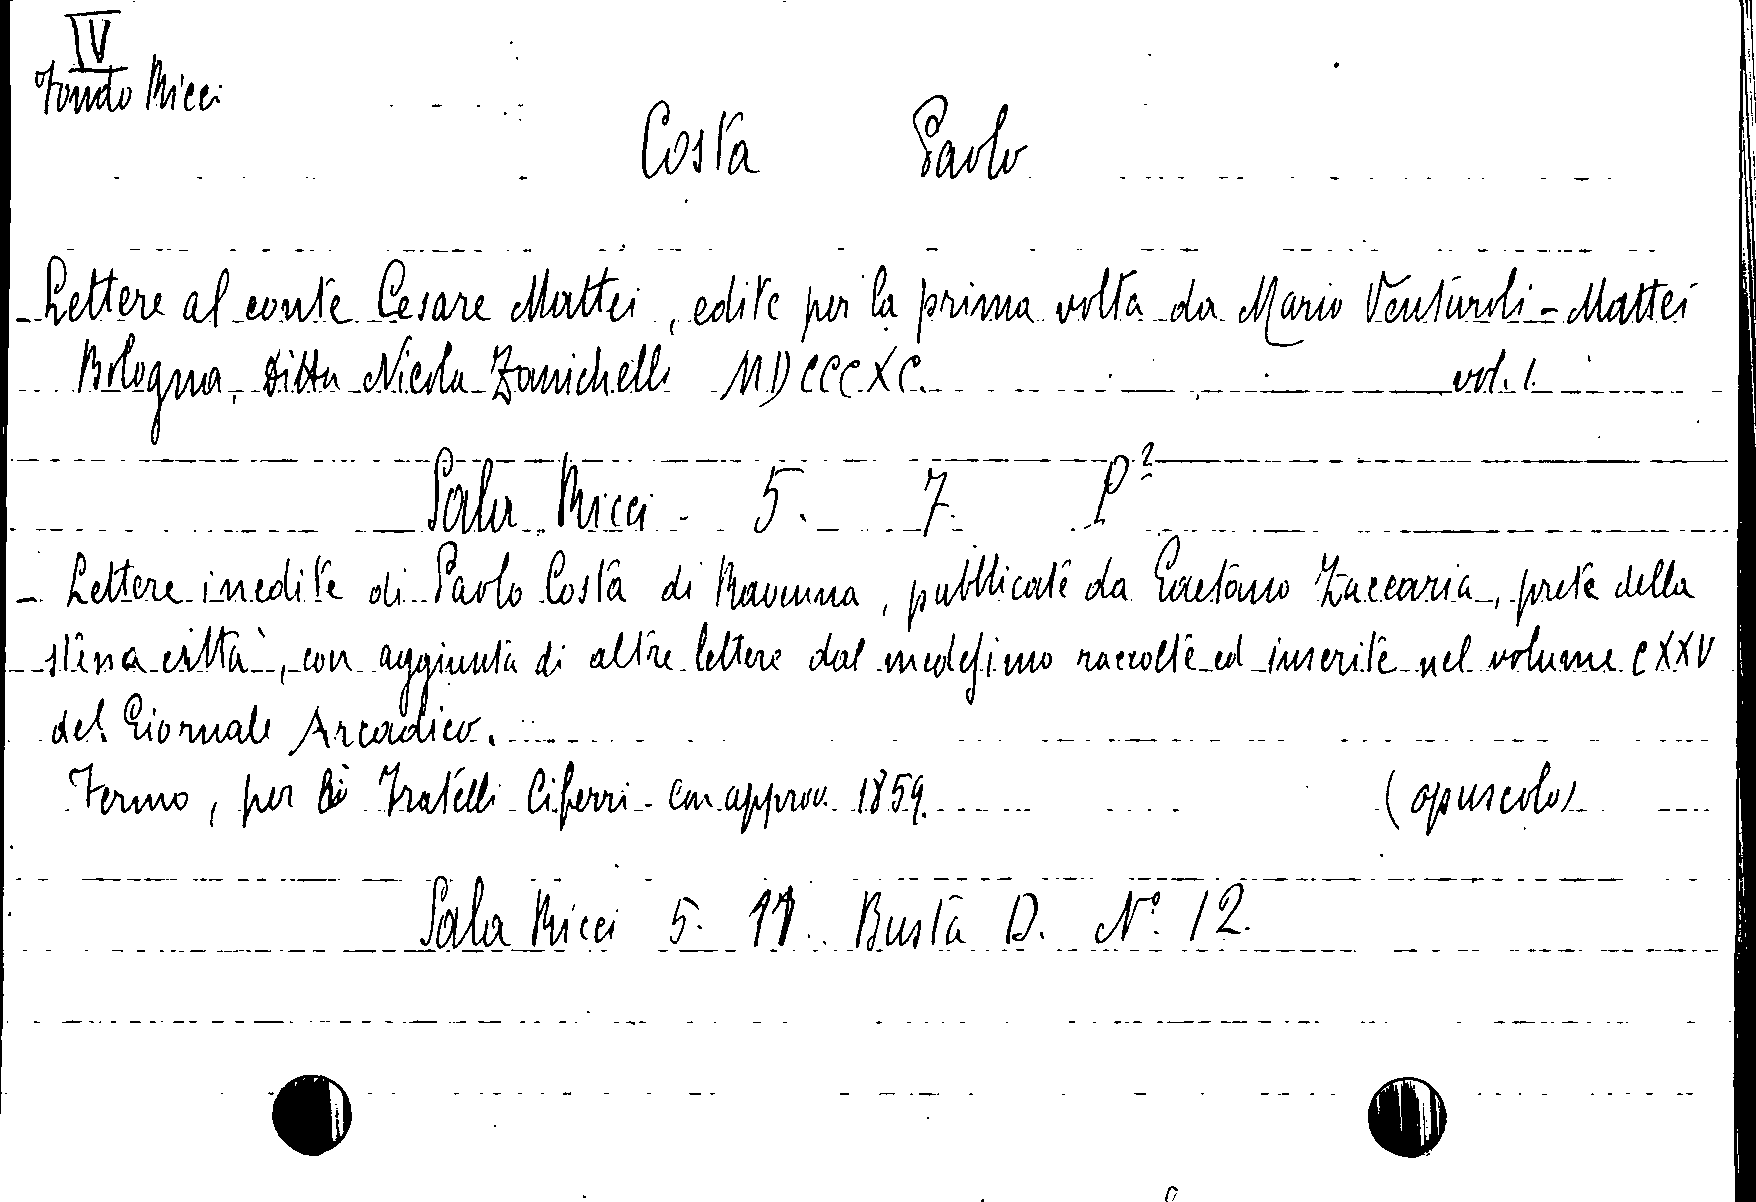 IV
Fondo Ricci
Costa Paolo
- Lettere al conte Cesare Mattei, edite per la prima volta da Mario Venturoli-Mattei
Bologna, Ditta Nicola Zanichelli MDCCCXC. vol. 1.
Sala Ricci 5. 7. P²
- Lettere inedite di Paolo Costa di Ravenna, pubblicate da Gaetano Zaccaria, prete della
stessa città, con aggiunta di altre lettere dal medesimo raccolte ed inserite nel volume CXXV
del Giornale Arcadico.
Fermo, per Fratelli Ciferri - con approv. 1859. (opuscolo)
Sala Ricci 5. 11. Busta D. N° 12.